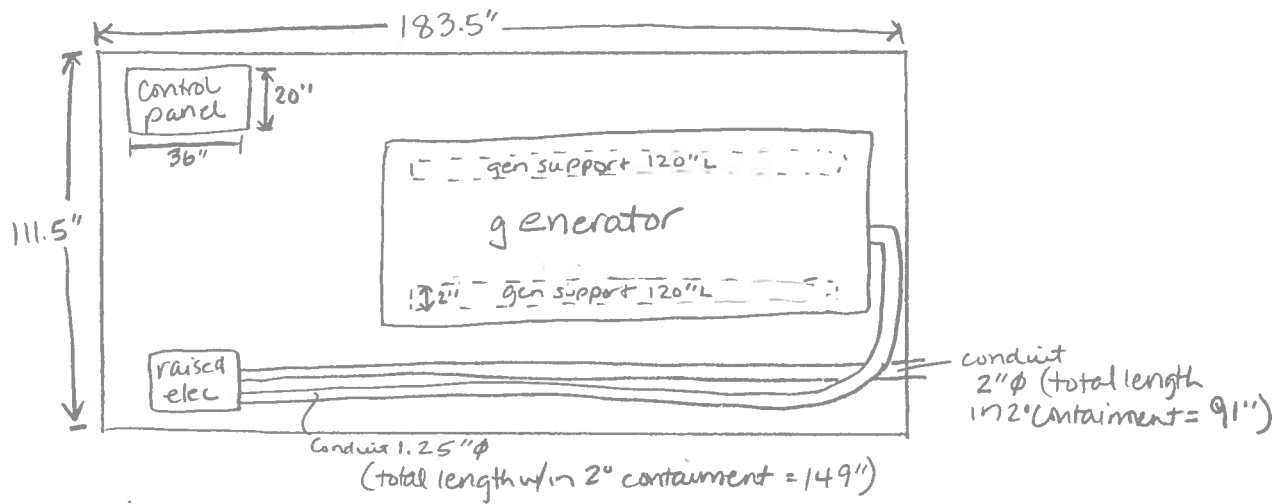 183.5"
control
panel
20"
36"
111.5"
gen support 120"L
generator
2" gen support 120"L
raised
elec
conduit
2"φ (total length
in 2° containment = 91")
Conduit 1.25"φ
(total length w/in 2° containment = 149")